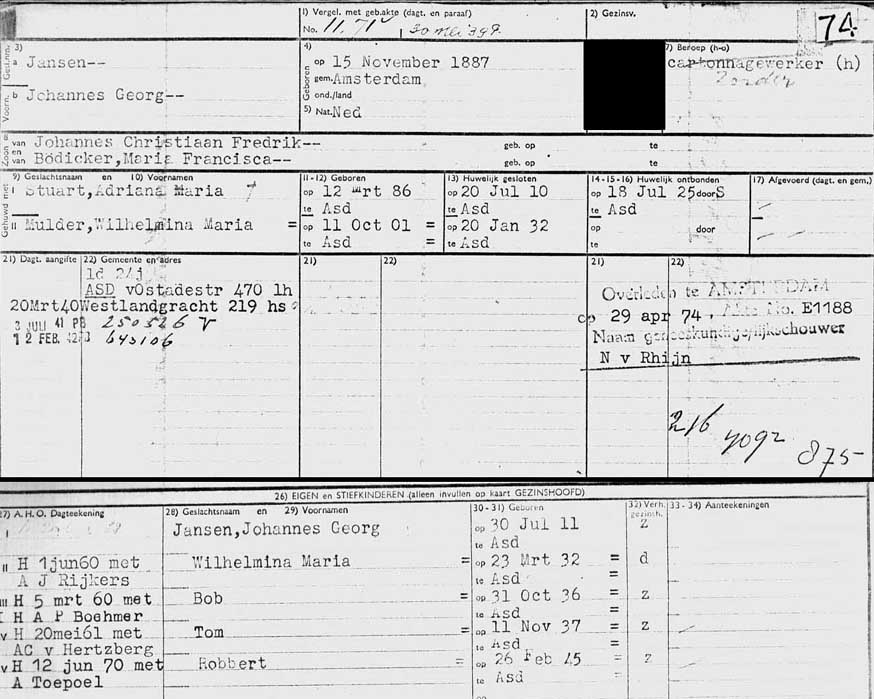 1) Vergel. met geb.akte (dagt. en paraaf)
No. 11.71
30 mei 399.
2) Gezinsv.
74.
Gesl.nm. 3)
a Jansen--
Voorn. b Johannes Georg--
4)
Geboren op 15 November 1887
gem. Amsterdam
ond./land
5) Nat. Ned
7) Beroep (h-o)
cartonnagewerker (h)
Zonder
Zoon en
van Johannes Christiaan Fredrik-- geb. op te
van Bödicker,Maria Francisca-- geb. op te
Gehuwd met
9) Geslachtsnaam en 10) Voornamen
11-12) Geboren
13) Huwelijk gesloten
14-15-16) Huwelijk ontbonden
17) Afgevoerd (dagt. en gem.)
I Stuart,Adriana Maria
op 12 Mrt 86
te Asd
op 20 Jul 10
te Asd
op 18 Jul 25 door S
te Asd
II Mulder,Wilhelmina Maria =
op 11 Oct 01 =
te Asd =
op 20 Jan 32
te Asd
op door
te
21) Dagt. aangifte 22) Gemeente en adres
21) 22)
21) 22)
ASD vOstadestr 470 1h
20Mrt40 Westlandgracht 219 hs
3 JULI 41 PB 250526 V
12 FEB. 42 643106
Overleden te AMSTERDAM
op 29 apr 74, Akte No. E1188
Naam geneeskundige/lijkschouwer
N v Rhijn
216
875
26) EIGEN en STIEFKINDEREN (alleen invullen op kaart GEZINSHOOFD)
27) A.H.O. Dagteekening
28) Geslachtsnaam en 29) Voornamen
30-31) Geboren
32) Verh. gezinsh.
33-34) Aanteekeningen
I Jansen,Johannes Georg op 30 Jul 11 z
te Asd
II H 1jun60 met Wilhelmina Maria = op 23 Mrt 32 = d
A J Rijkers te Asd =
III H 5 mrt 60 met Bob = op 31 Oct 36 = z
H A P Boehmer te Asd =
V H 20mei61 met Tom = op 11 Nov 37 = z
AC v Hertzberg te Asd =
V H 12 jun 70 met Robbert = op 26 Feb 45 = z
A Toepoel te Asd =